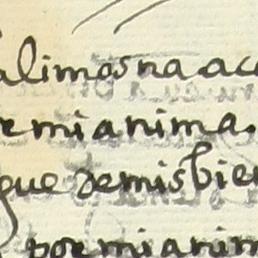 alimosna aco
r mi anima.
que de mis bien
por mi anim